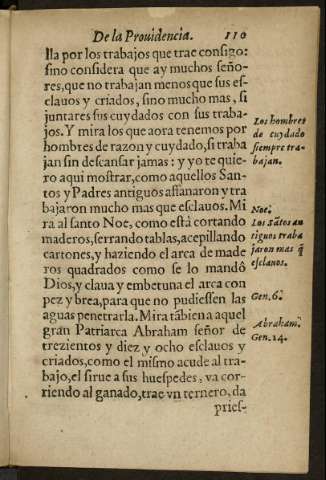 De la Prouidencia. 110
lla por los trabajos que trae consigo:
sino considera que ay muchos seño-
res, que no trabajan menos que sus es-
clauos y criados, sino mucho mas, si
juntares sus cuydados con sus traba-
jos. Y mira los que aora tenemos por
hombres de razon y cuydado, si traba
jan sin descansar jamas: y yo te quie-
ro aqui mostrar, como aquellos San-
tos y Padres antiguos afanaron y tra
bajaron mucho mas que esclauos. Mi
ra al santo Noe, como está cortando
maderos, serrando tablas, acepillando
cartones, y haziendo el arca de made
ros quadrados como se lo mandô
Dios, y claua y embetuna el arca con
pez y brea, para que no pudiessen las
aguas penetrarla. Mira tãbien a aquel
gran Patriarca Abraham señor de
trezientos y diez y ocho esclauos y
criados, como el mismo acude al tra-
bajo, el sirue a sus huespedes, va cor-
riendo al ganado, trae vn ternero, da
pries-
Los hombres
de cuydado
siempre tra-
bajan.
Noe.
Los Sãtos an
tiguos traba
jaron mas q̃
esclauos.
Gen. 6.
Abraham.
Gen. 14.